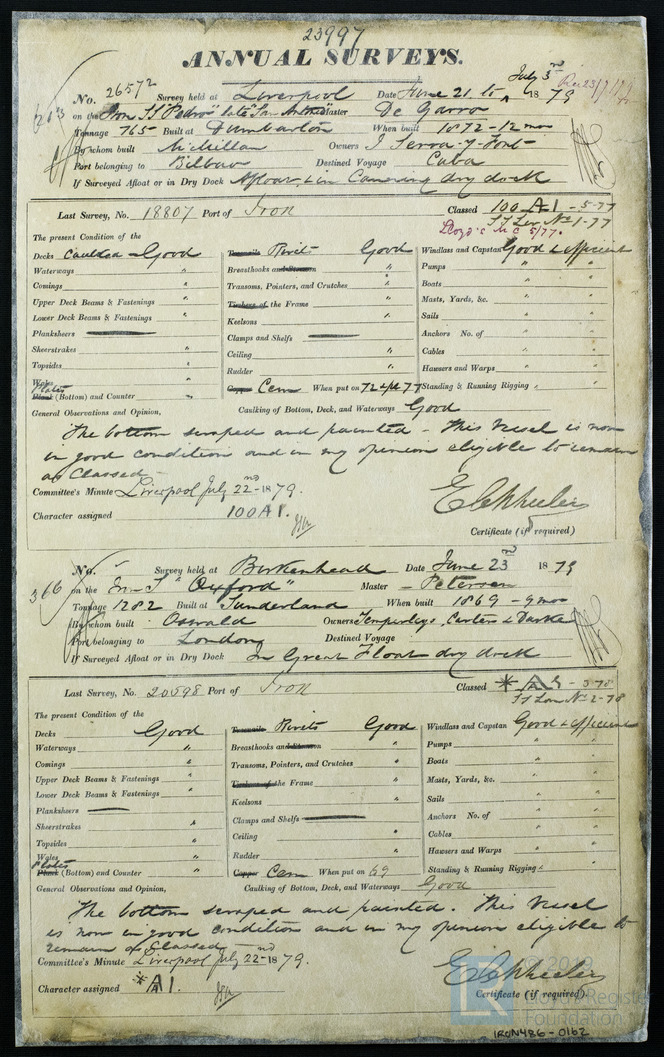 23997
ANNUAL SURVEYS.
No. 26572 Survey held at Liverpool Date June 21 to July 3rd 1879
on the Iron SS "Pedro" late "San Antonio" Master De Garro
Tonnage 765 Built at Dumbarton When built 1872-12 mo
By whom built McMillan Owners J Serra y Font
Port belonging to Bilbao Destined Voyage Cuba
If Surveyed Afloat or in Dry Dock Afloat & in Canning dry dock
Last Survey, No. 18807 Port of Iron Classed 100 A1 - 5-77
SS Liv No 1-77
Lloyd's MC 5/77.
The present Condition of the
Decks Caulked - Good Treenails Rivits Good Windlass and Capstan Good & efficient
Waterways " Breasthooks and Stemson " Pumps " "
Comings " Transoms, Pointers, and Crutches " Boats " "
Upper Deck Beams & Fastenings " Timbers of the Frame " Masts, Yards, &c. " "
Lower Deck Beams & Fastenings " Keelsons " Sails " "
Planksheers Clamps and Shelfs Anchors No. of " "
Sheerstrakes " Ceiling " Cables " "
Topsides " Rudder " Hawsers and Warps " "
Wales " Copper Cem When put on 72 & pt 77 Standing & Running Rigging " "
Plates Plank (Bottom) and Counter "
General Observations and Opinion, Caulking of Bottom, Deck, and Waterways Good
The bottom scraped and painted - This Vessel is now
in good condition and in my opinion eligible to remain
as Classed
Committee's Minute Liverpool July 22nd - 1879.
Character assigned 100 A1.
E C Wheeler
Certificate (if required)
No. " Survey held at Birkenhead Date June 23rd 1879
on the Iron S "Oxford" Master Petersen
Tonnage 1282 Built at Sunderland When built 1869 - 9 mo
By whom built Oswald Owners Temperleys, Carter & Darke
Port belonging to London Destined Voyage
If Surveyed Afloat or in Dry Dock In Great Float dry dock
Last Survey, No. 20598 Port of Iron Classed A1 - 3-78
SS Lon No 2-78
The present Condition of the
Decks Good Treenails Rivits Good Windlass and Capstan Good & efficient
Waterways " Breasthooks and Stemson " Pumps " "
Comings " Transoms, Pointers, and Crutches " Boats " "
Upper Deck Beams & Fastenings " Timbers of the Frame " Masts, Yards, &c. " "
Lower Deck Beams & Fastenings " Keelsons " Sails " "
Planksheers Clamps and Shelfs Anchors No. of " "
Sheerstrakes " Ceiling " Cables " "
Topsides " Rudder " Hawsers and Warps " "
Wales " Copper Cem When put on 69 Standing & Running Rigging "
Plates Plank (Bottom) and Counter "
General Observations and Opinion, Caulking of Bottom, Deck, and Waterways Good
The bottom scraped and painted. This Vessel
is now in good condition and in my opinion eligible to
remain as Classed
Committee's Minute Liverpool July 22nd - 1879.
Character assigned A1.
E C Wheeler
Certificate (if required)
© 2019
Lloyd's Register
Foundation
IRON486-0162